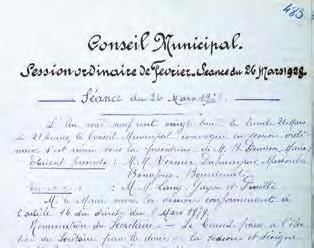 483
Conseil Municipal.
Session ordinaire de Fevrier. Séance du 26 Mars 1928.
Séance du 26 Mars 1928
L'An mil neuf cent vingt huit le Lundi 26 Mars
à 21 heures, le Conseil Municipal convoqué en session ordi-
naire s'est réuni sous la présidence de M. Maire.
étaient présents: M.M. Vernier
M.M. Lamy, Jayon et
M. le Maire ouvre la session conformément à
l'article 16 du décret du Mars 1879.
Nomination du Secrétaire - Le Conseil passe à l'élec-
tion du Secrétaire pour la durée de la session et désigne